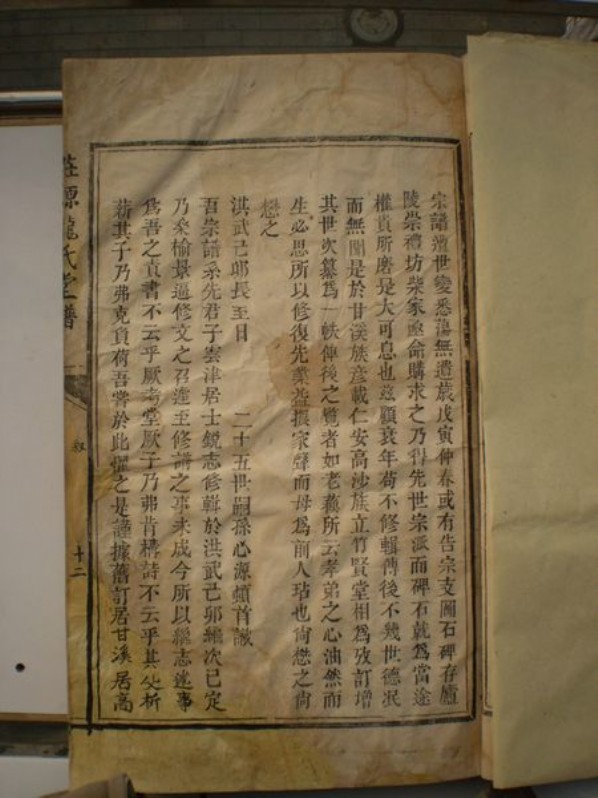 宗譜遭世變悉蕩無遺歲戊寅仲春或有告宗支圖石碑存廬
陵崇禮坊柴家亟命購求之乃得先世宗派而碑石就爲當途
權貴所磨是大可息也茲顧衰年苟不修輯傳後不幾世德泯
而無聞是於甘溪族彦載仁安高沙族立竹賢堂相爲攷訂增
其世次纂爲一帙俾後之覽者如老蘇所云孝弟之心油然而
生必思所以修復先業益振家聲而毋爲前人玷也尙懋之尙
懋之
洪武己卯長至日 二十五世嗣孫心源頓首識
吾宗譜系先君子雲津居士銳志修輯於洪武己卯纔次已定
乃桑榆景逼修文之召遽至修譜之事未成今所以繼志述事
爲吾之責書不云乎厥考堂厥子乃弗肯構詩不云乎其父析
薪其子乃弗克負荷吾嘗於此懼之是謹據舊訂居甘溪居高
莊源龍氏堂譜
十二